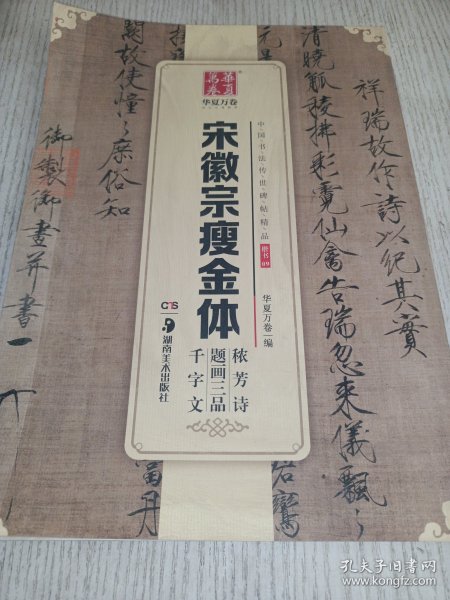 祥瑞故作詩以紀其實
清曉觚稜拂彩霓仙禽告瑞忽來儀飄々
元是
闕故使憧々庶俗知
御製御畫并書
華夏萬卷
華夏万卷
中国书法传世碑帖精品
楷书09
华夏万卷 编
宋徽宗瘦金体
秾芳诗
题画三品
千字文
湖南美术出版社
孔夫子旧书网
www.kongfz.com